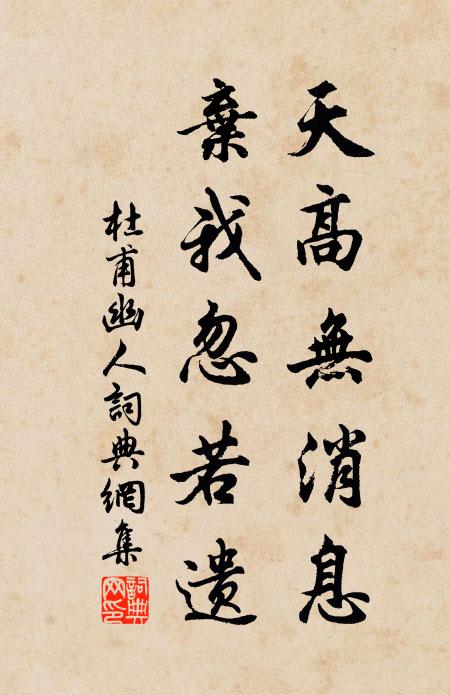 天高無消息
棄我忽若遺
杜甫幽人詞典網集
詞典網印